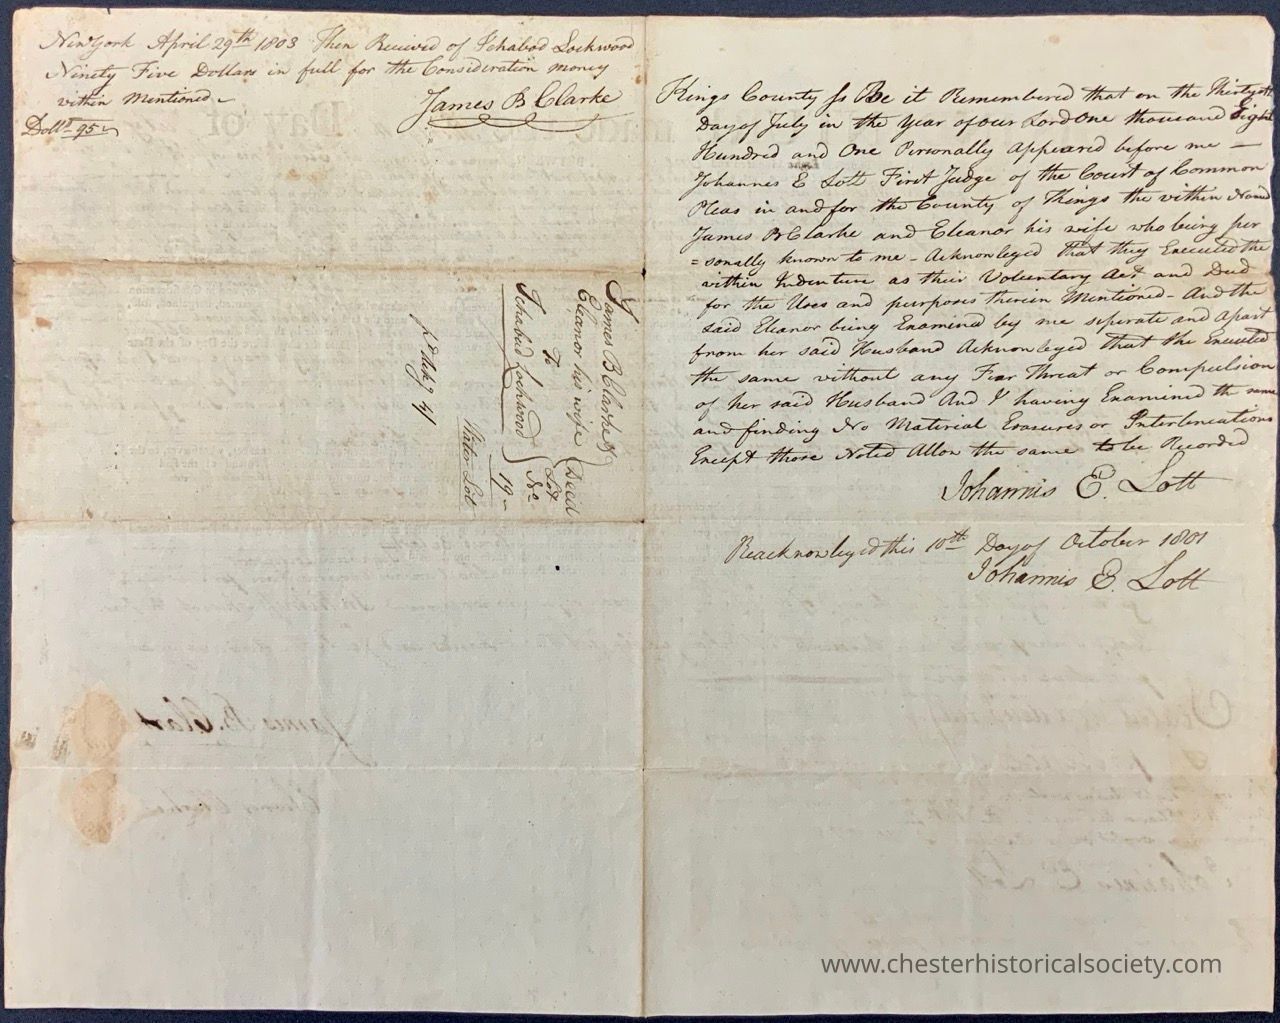 New York April 29th 1803 Then Received of Ichabod Lockwood
Ninety Five Dollars in full for the Consideration money
within Mentioned
James B Clarke
Dollrs 95
James B Clarke &
Eleanor his wife
To
Ichabod Lockwood
Deed
Lot
No.
19
Water Lot
Kings County ss Be it Remembered that on the Thirtyeth
Day of July in the Year of our Lord One thousand Eight
Hundred and One Personally Appeared before me
Johannes E Lott First Judge of the Court of Common
Pleas in and for the County of Kings the within Named
James B Clarke and Eleanor his wife who being per
=sonally known to me - Acknowleged that they Executed the
within Indenture as their Voluntary Act and Deed
for the Uses and purposes therein Mentioned - And the
said Eleanor being Examined by me seperate and apart
from her said Husband Acknowleged that she Executed
the same without any Fear Threat or Compulsion
of her said Husband And I having Examined the same
and finding No Material Erasures or Interlineations
Except those Noted Allow the same to be Recorded
Johannis E. Lott
Reacknowleged this 10th Day of October 1801
Johannis E. Lott
www.chesterhistoricalsociety.com